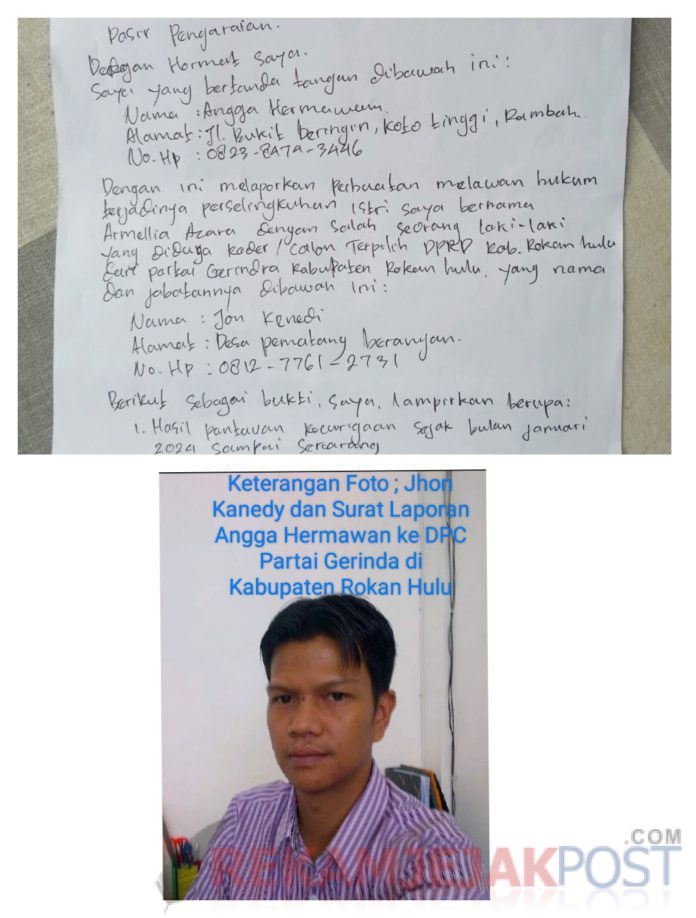 Pasir Pengaraian.
Dengan Hormat Saya.
Saya yang bertanda tangan dibawah ini:
Nama : Angga Hermawan.
Alamat : Jl. Bukit beringin, Koto tinggi, Rambah.
No. Hp : 0823-8474-3446
Dengan ini melaporkan Perbuatan melawan hukum
terjadinya perselingkuhan Istri saya bernama
Armellia Azara dengan Salah seorang laki-laki
yang Diduga kader / Calon Terpilih DPRD Kab. Rokan hulu
dari partai Gerindra Kabupaten Rokan hulu, yang nama
dan Jabatannya dibawah ini:
Nama : Jon Kenedi
Alamat : Desa pematang berangan.
No. Hp : 0812-7761-2731
Berikut sebagai bukti, saya, lampirkan berupa:
1. Hasil pantauan kecurigaan sejak bulan januari
2024 sampai sekarang
Keterangan Foto ; Jhon
Kanedy dan Surat Laporan
Angga Hermawan ke DPC
Partai Gerinda di
Kabupaten Rokan Hulu
REKAMJEJAKPOST.COM